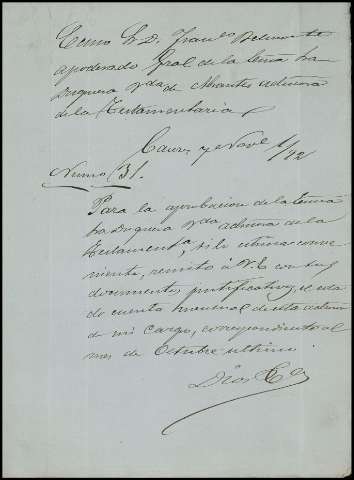 Como Sr D. Franco Belmonte
apoderado Gral de la Exma
Duquesa Vda de Abrantes admora
de la Testamentaria
Nove 1/72
Numo 31.
Para la aprobacion de la Exma
Sra Duquesa Vda admora de la
Testamenta, si lo estima conve-
niente, remito á V.E. con sus
documentos justificativos, el esta-
do cuenta mensual de esta admon
de mi cargo, correspondiente al
mes de Octubre ultimo.
Dios &a